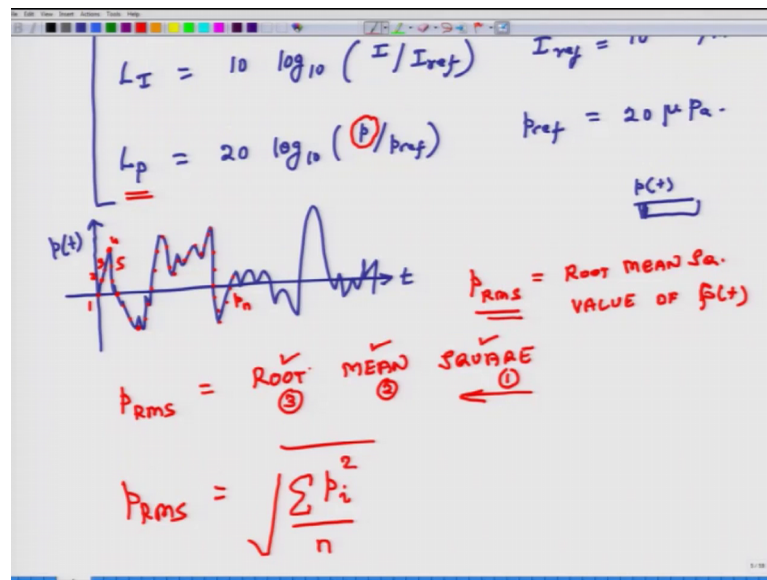 File Edit View Insert Actions Tools Help
L_I = 10 log10 ( I / Iref ) Iref = 10
Lp = 20 log10 ( p / pref ) pref = 20 μ Pa.
p(t)
p(t)
1 2 3 4 5 pn t
pRMS = ROOT MEAN SQ.
VALUE OF p(t)
pRMS = ROOT MEAN SQUARE
③ ② ①
pRMS = √ Σ pi² / n